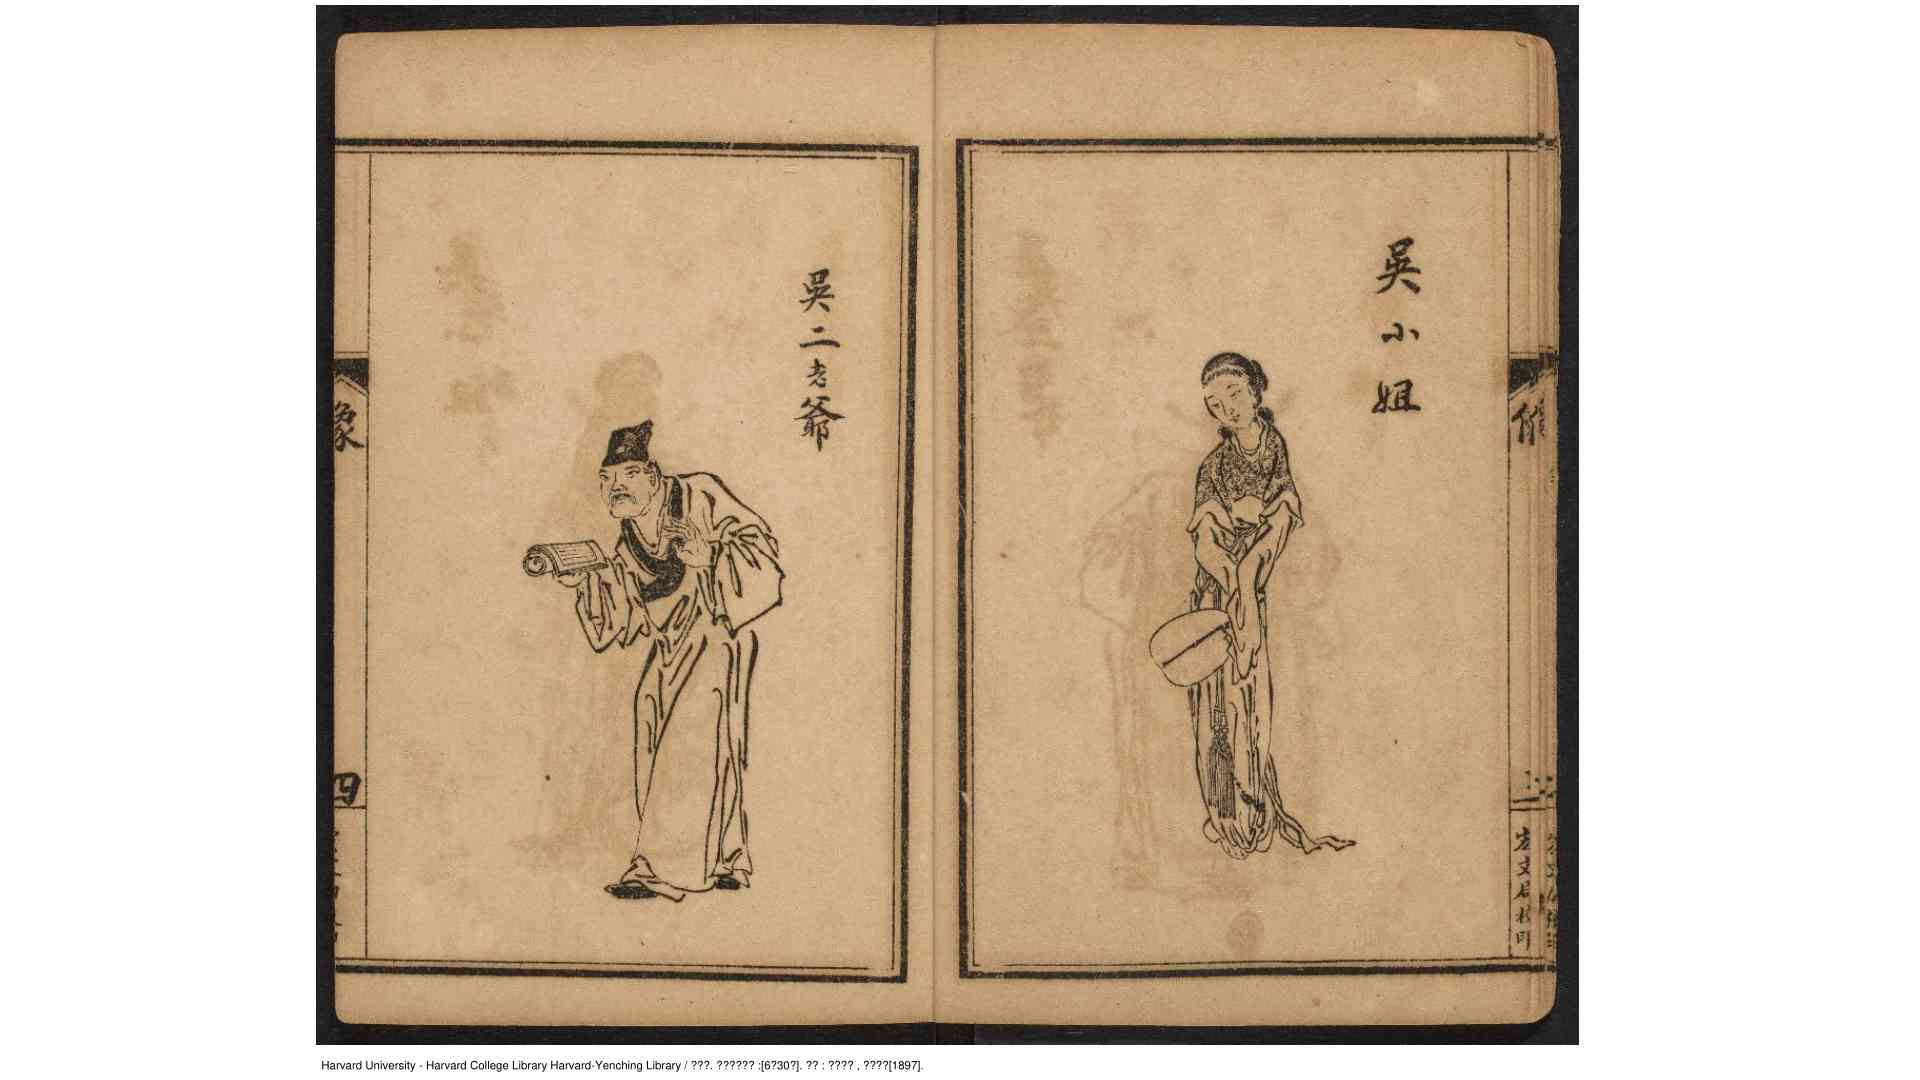 吳小姐
吳二老爺
像
四
Harvard University - Harvard College Library Harvard-Yenching Library / ???. ?????? :[6?30?]. ?? : ???? , ????[1897].